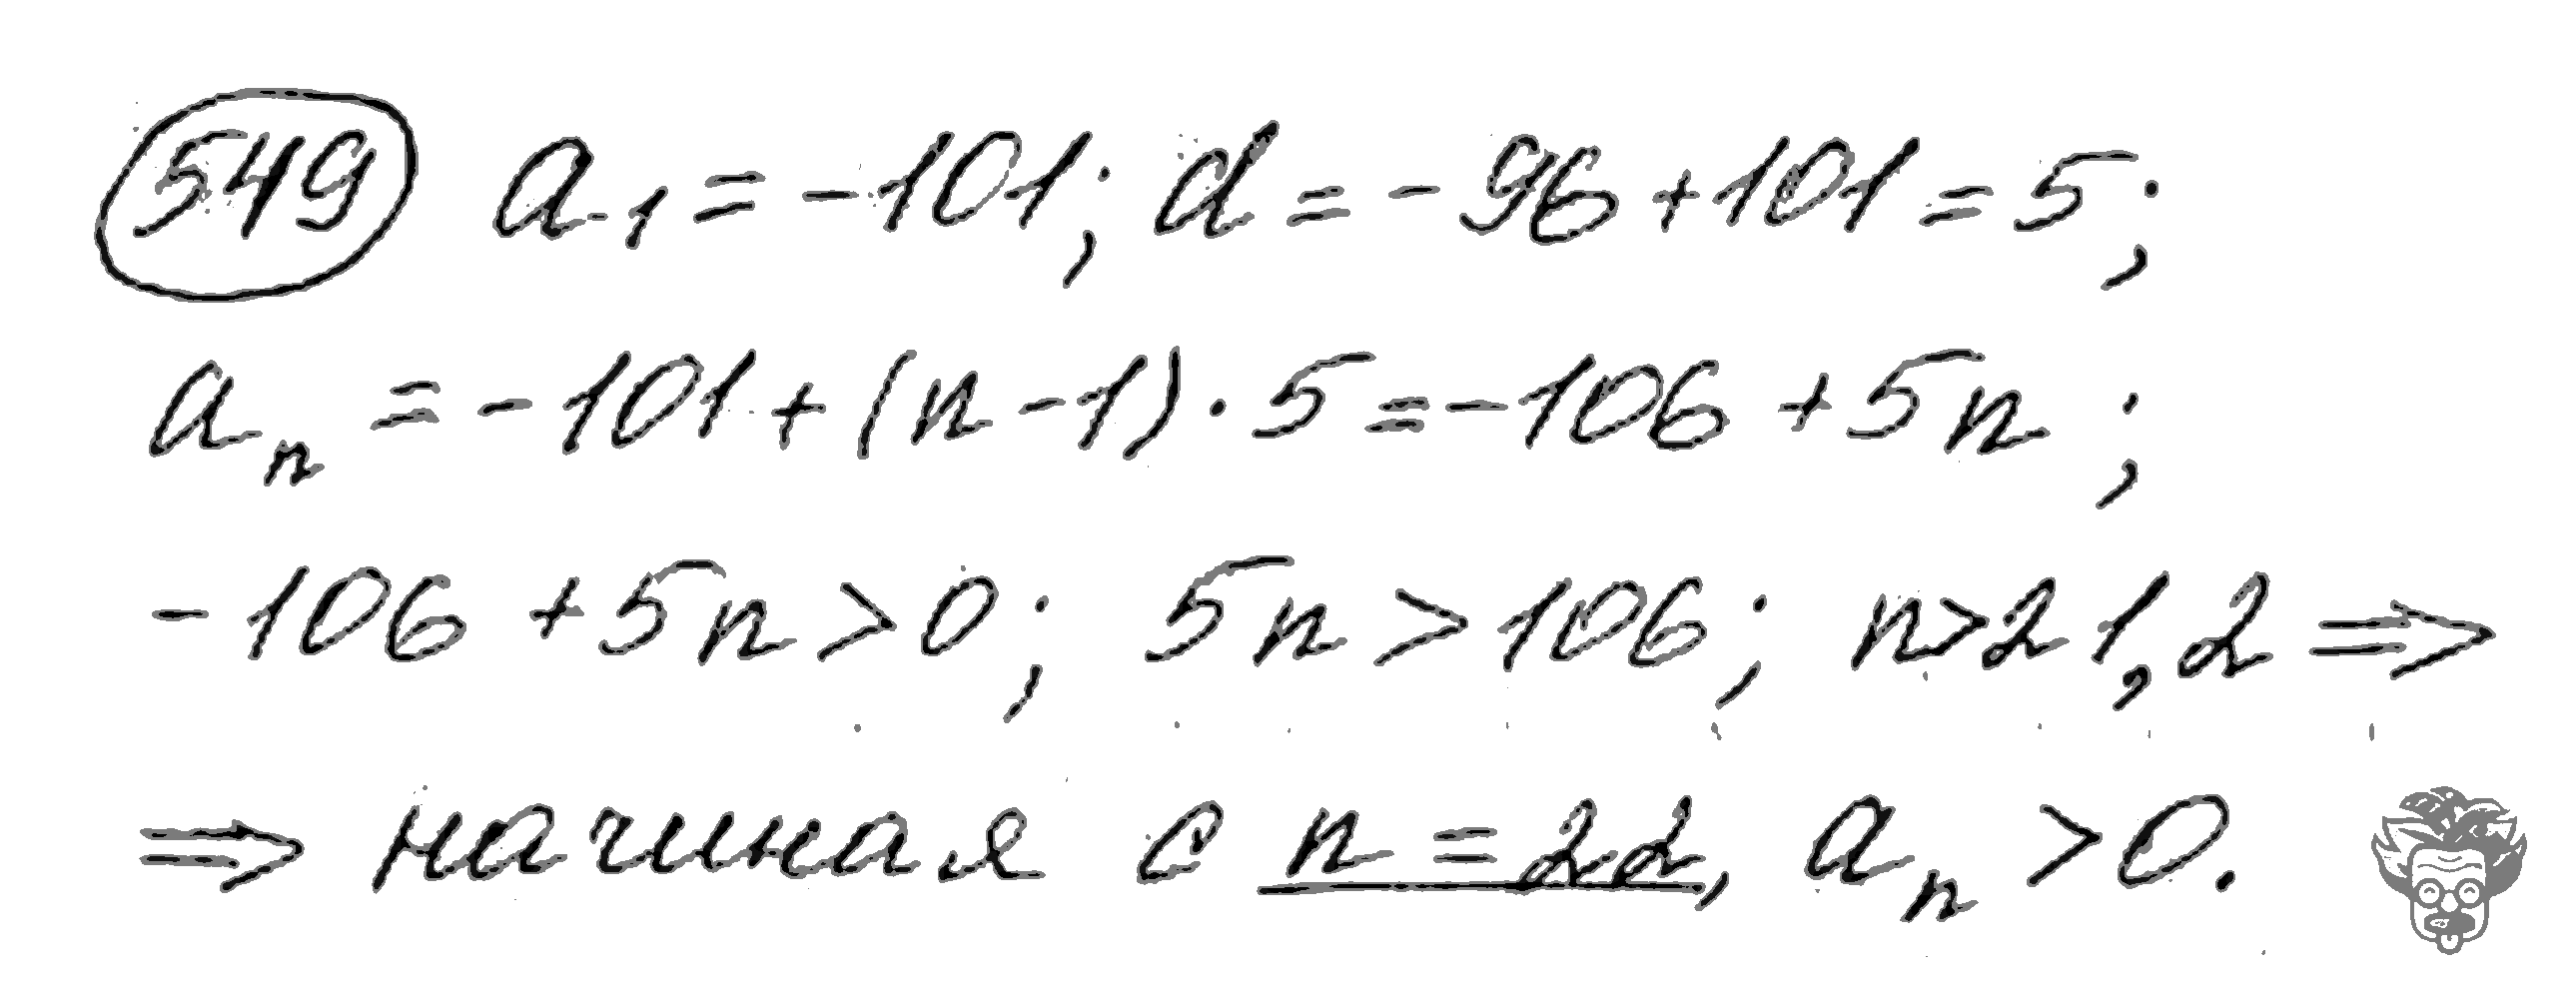 549 a₁ = -101; d = -96 + 101 = 5;
aₙ = -101 + (n - 1) · 5 = -106 + 5n;
-106 + 5n > 0; 5n > 106; n > 21,2 ⇒
⇒ начиная с n = 22, aₙ > 0.